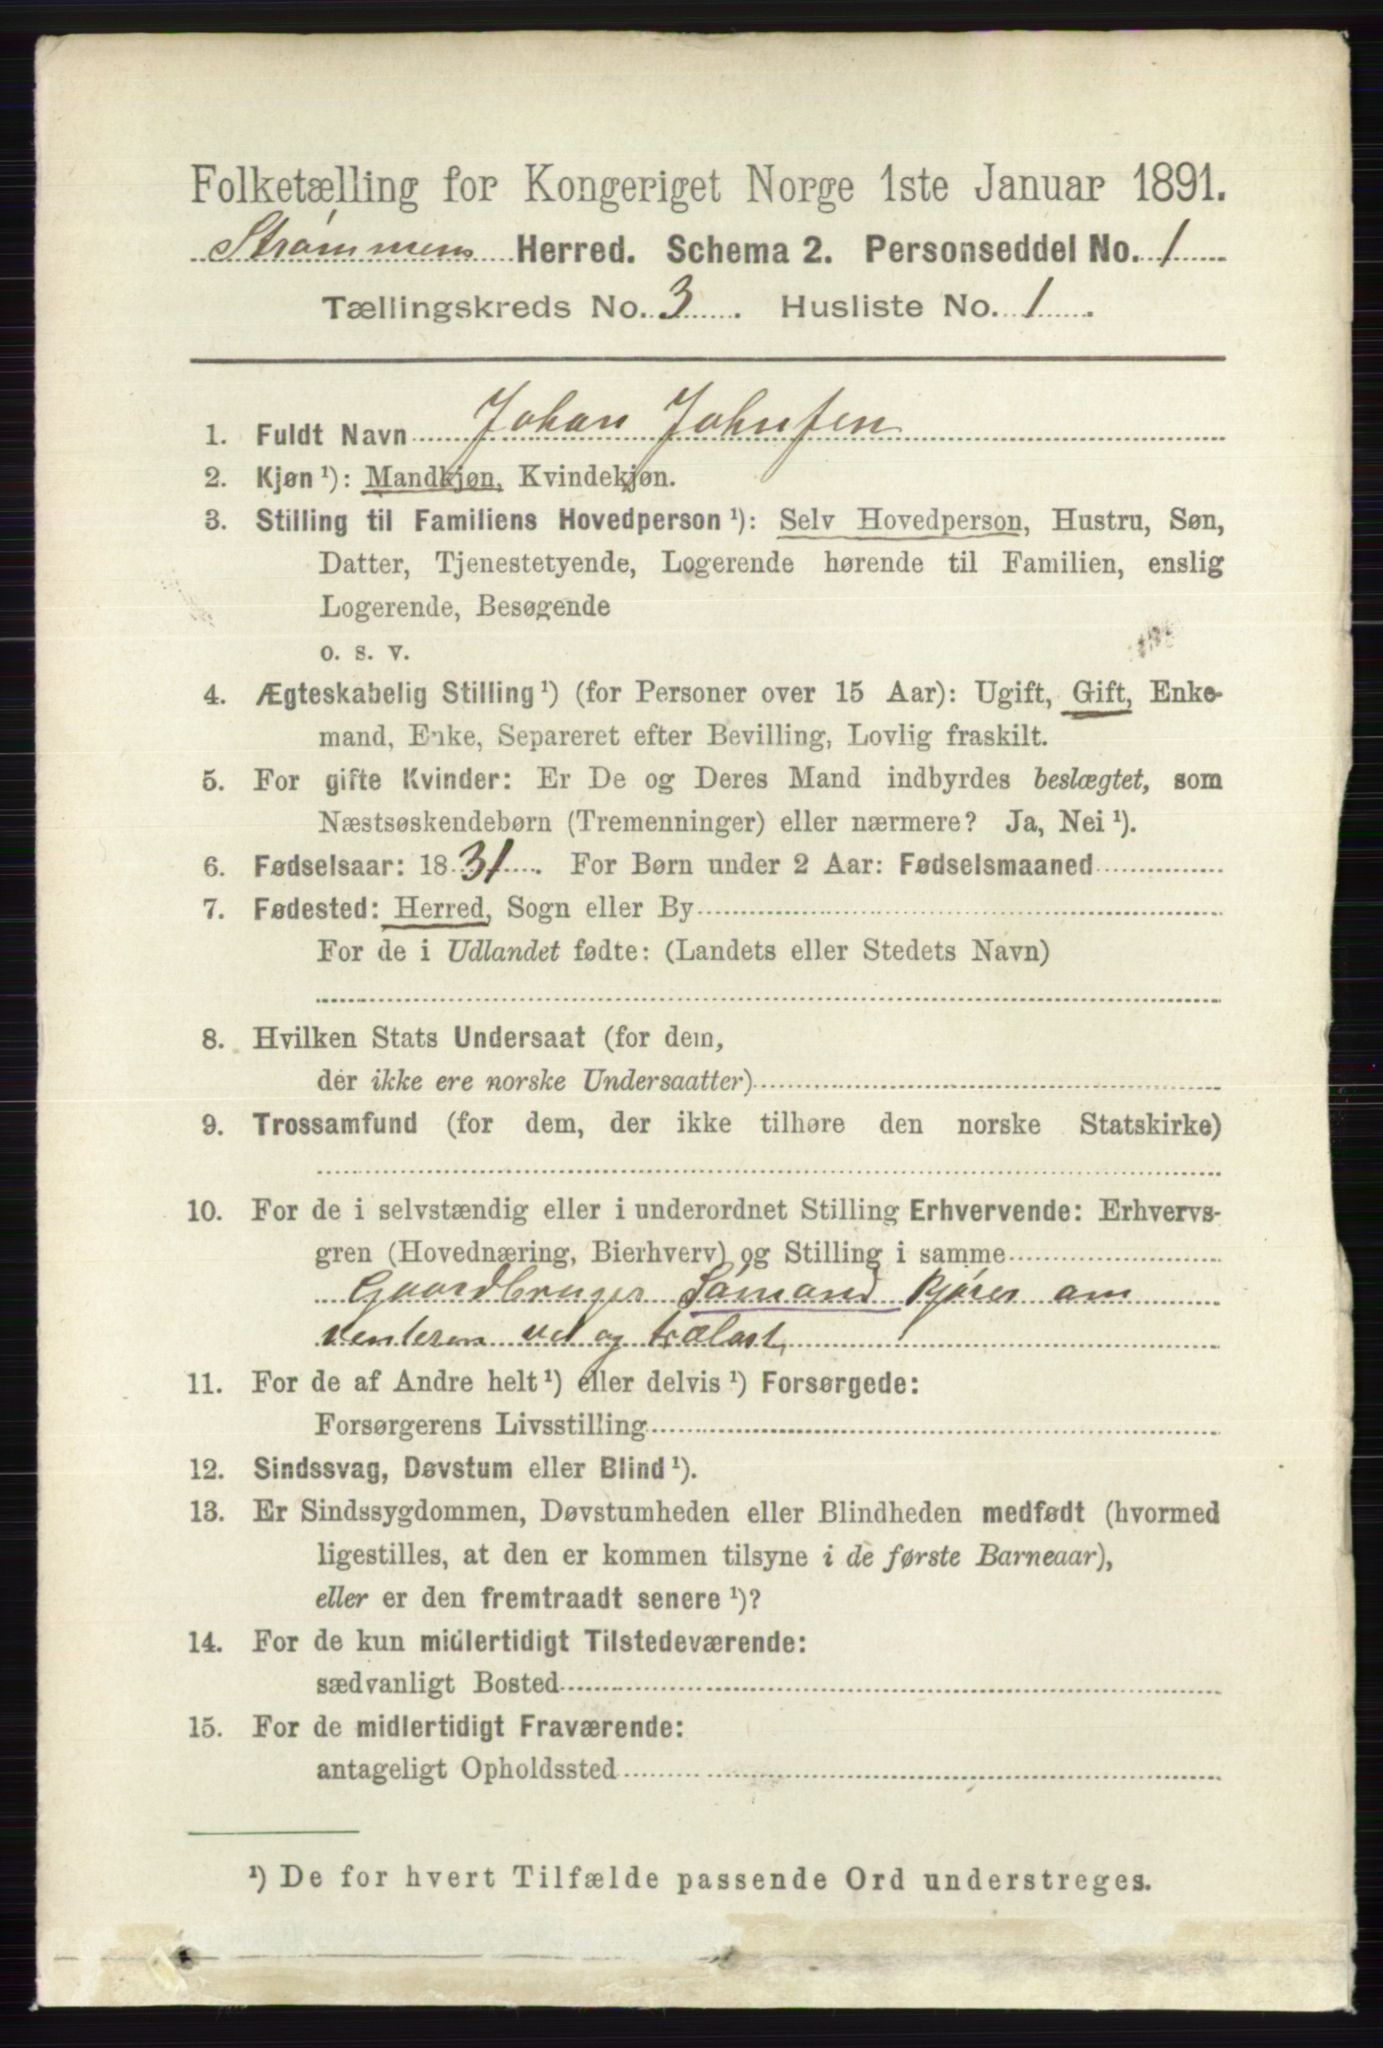 Folketælling for Kongeriget Norge 1ste Januar 1891.
Strømmens Herred. Schema 2. Personseddel No. 1
Tællingskreds No. 3. Husliste No. 1.
1. Fuldt Navn Johan Johnsen
2. Kjøn ¹): Mandkjøn, Kvindekjøn.
3. Stilling til Familiens Hovedperson ¹): Selv Hovedperson, Hustru, Søn,
Datter, Tjenestetyende, Logerende hørende til Familien, enslig
Logerende, Besøgende
o. s. v.
4. Ægteskabelig Stilling ¹) (for Personer over 15 Aar): Ugift, Gift, Enke-
mand, Enke, Separeret efter Bevilling, Lovlig fraskilt.
5. For gifte Kvinder: Er De og Deres Mand indbyrdes beslægtet, som
Næstsøskendebørn (Tremenninger) eller nærmere? Ja, Nei ¹).
6. Fødselsaar: 1831. For Børn under 2 Aar: Fødselsmaaned
7. Fødested: Herred, Sogn eller By
For de i Udlandet fødte: (Landets eller Stedets Navn)
8. Hvilken Stats Undersaat (for dem,
der ikke ere norske Undersaatter)
9. Trossamfund (for dem, der ikke tilhøre den norske Statskirke)
10. For de i selvstændig eller i underordnet Stilling Erhvervende: Erhvervs-
gren (Hovednæring, Bierhverv) og Stilling i samme
Gaardbruger Sømand kjører om
venteren ved og trælast,
11. For de af Andre helt ¹) eller delvis ¹) Forsørgede:
Forsørgerens Livsstilling
12. Sindssvag, Døvstum eller Blind ¹).
13. Er Sindssygdommen, Døvstumheden eller Blindheden medfødt (hvormed
ligestilles, at den er kommen tilsyne i de første Barneaar),
eller er den fremtraadt senere ¹)?
14. For de kun midlertidigt Tilstedeværende:
sædvanligt Bosted
15. For de midlertidigt Fraværende:
antageligt Opholdssted
¹) De for hvert Tilfælde passende Ord understreges.